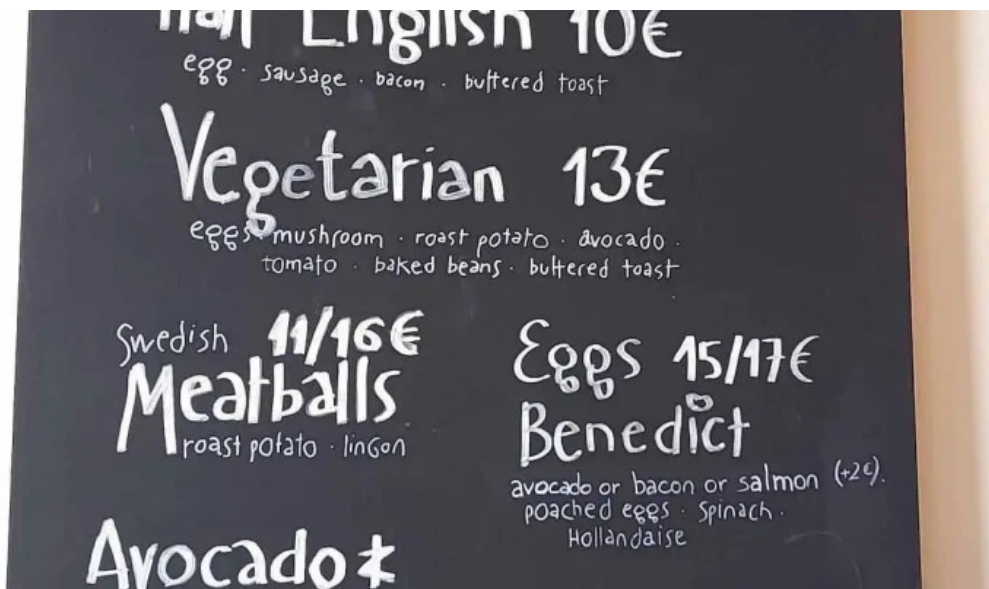 Half English 10€
egg · sausage · bacon · buttered toast
Vegetarian 13€
eggs · mushroom · roast potato · avocado ·
tomato · baked beans · buttered toast
Swedish 11/16€
Meatballs
roast potato · lingon
Eggs 15/17€
Benedict
avocado or bacon or salmon (+2€).
poached eggs · spinach ·
Hollandaise
Avocado*